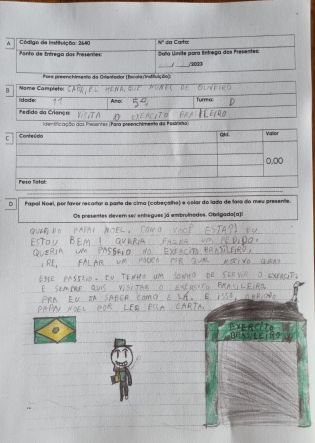 A Código de Instituição: 2640 Nº da Carta:
Ponto de Entrega dos Presentes: Data Limite para Entrega dos Presentes:
__/__/2023
Para preenchimento do Orientador (Escola/Instituição):
B Nome Completo: HENRIQUE NUNES DE OLIVEIRA
Idade: 11 Ano: 5º Turma: D
Pedido da Criança: VISITA O EXERCITO BRASILEIRO
Identificação dos Presentes (Para preenchimento do Padrinho)
C Conteúdo Qtd. Valor
0,00
Peso Total:
D Papai Noel, por favor recortar a parte de cima (cabeçalho) e colar do lado de fora do meu presente.
Os presentes devem ser entregues já embrulhados. Obrigado(a)!
QUERIDO PAPAI NOEL, COMO VOCÊ ESTA?! EU
ESTOU BEM! QUERIA FAZER UM PEDIDO.
QUERIA UM PASSEIO NO EXERCITO BRASILEIRO,
FALAR UM POUCO POR QUAL MOTIVO QUERO
ESSE PASSEIO. EU TENHO UM SONHO DE SERVIR O EXERCITO
E SEMPRE QUIS VISITAR O EXERCITO BRASILEIRO
PRA EU JA SABER COMO E LA. E ISSO, OBRIGADO
PAPAI NOEL POR LER ESSA CARTA.
EXERCITO
BRASILEIRO